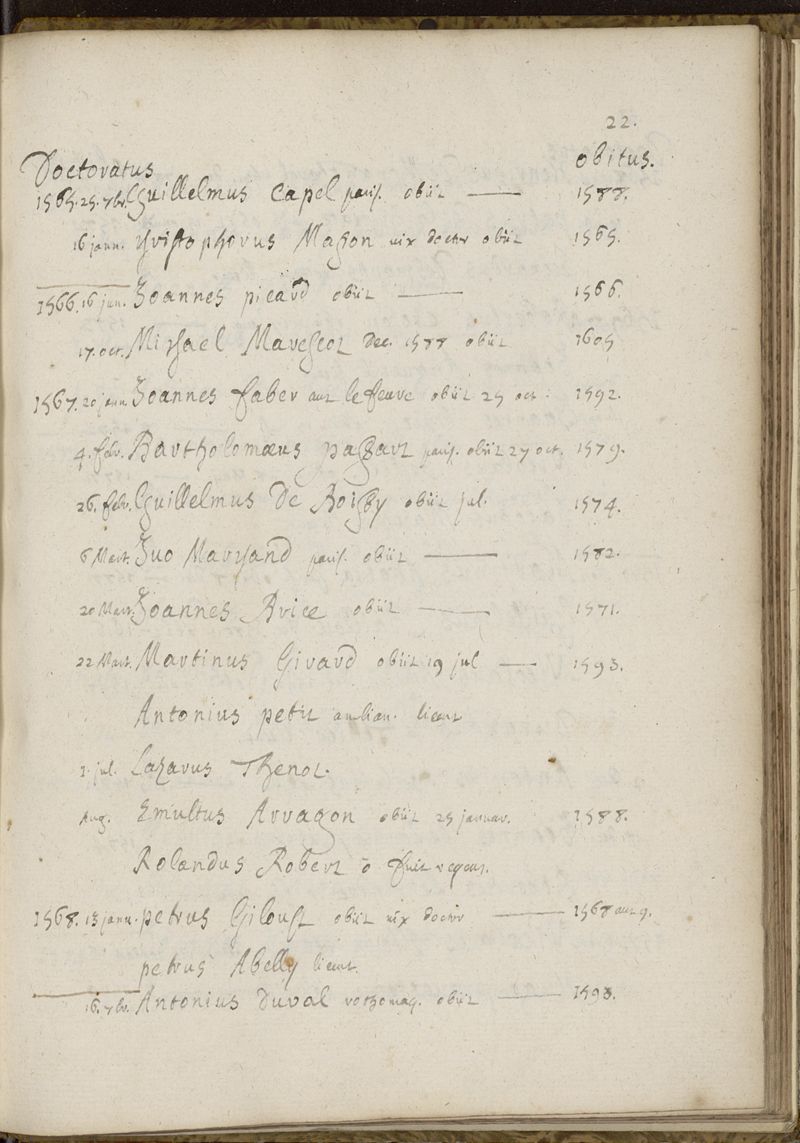 22.
Doctoratus obitus.
1565. 25. 7br. Guillelmus Capel paris. obiit — 1588.
16 janu. Christophorus Magon vix doctor obiit 1565.
1566. 16 jan. Joannes picard obiit — 1566.
17. oct. Michael Marescot dec. 1588 obiit 1605
1567. 20 janu. Joannes faber aut le feuve obiit 25 oct. 1592.
4. febr. Bartholomæus pagart paris. obiit 27 oct. 1579.
26. febr. Guillelmus De Boisby obiit jul. 1574.
6 Mart. Juo Marchand paris. obiit — 1582.
20 Mart. Joannes Avice obiit — 1571.
22 Mart. Martinus Girard obiit 19 jul — 1593.
Antonius petit ambian. licent
1. jul. Lazarus Thenot.
Aug. Emultus Arragon obiit 25 januar. 1588.
Rolandus Robert õ fuit regens.
1568. 13 janu. petrus Giloust obiit vix doctor — 1568 aut 9.
petrus Abelly licent.
16. 7br. Antonius Duval rothomag. obiit — 1593.